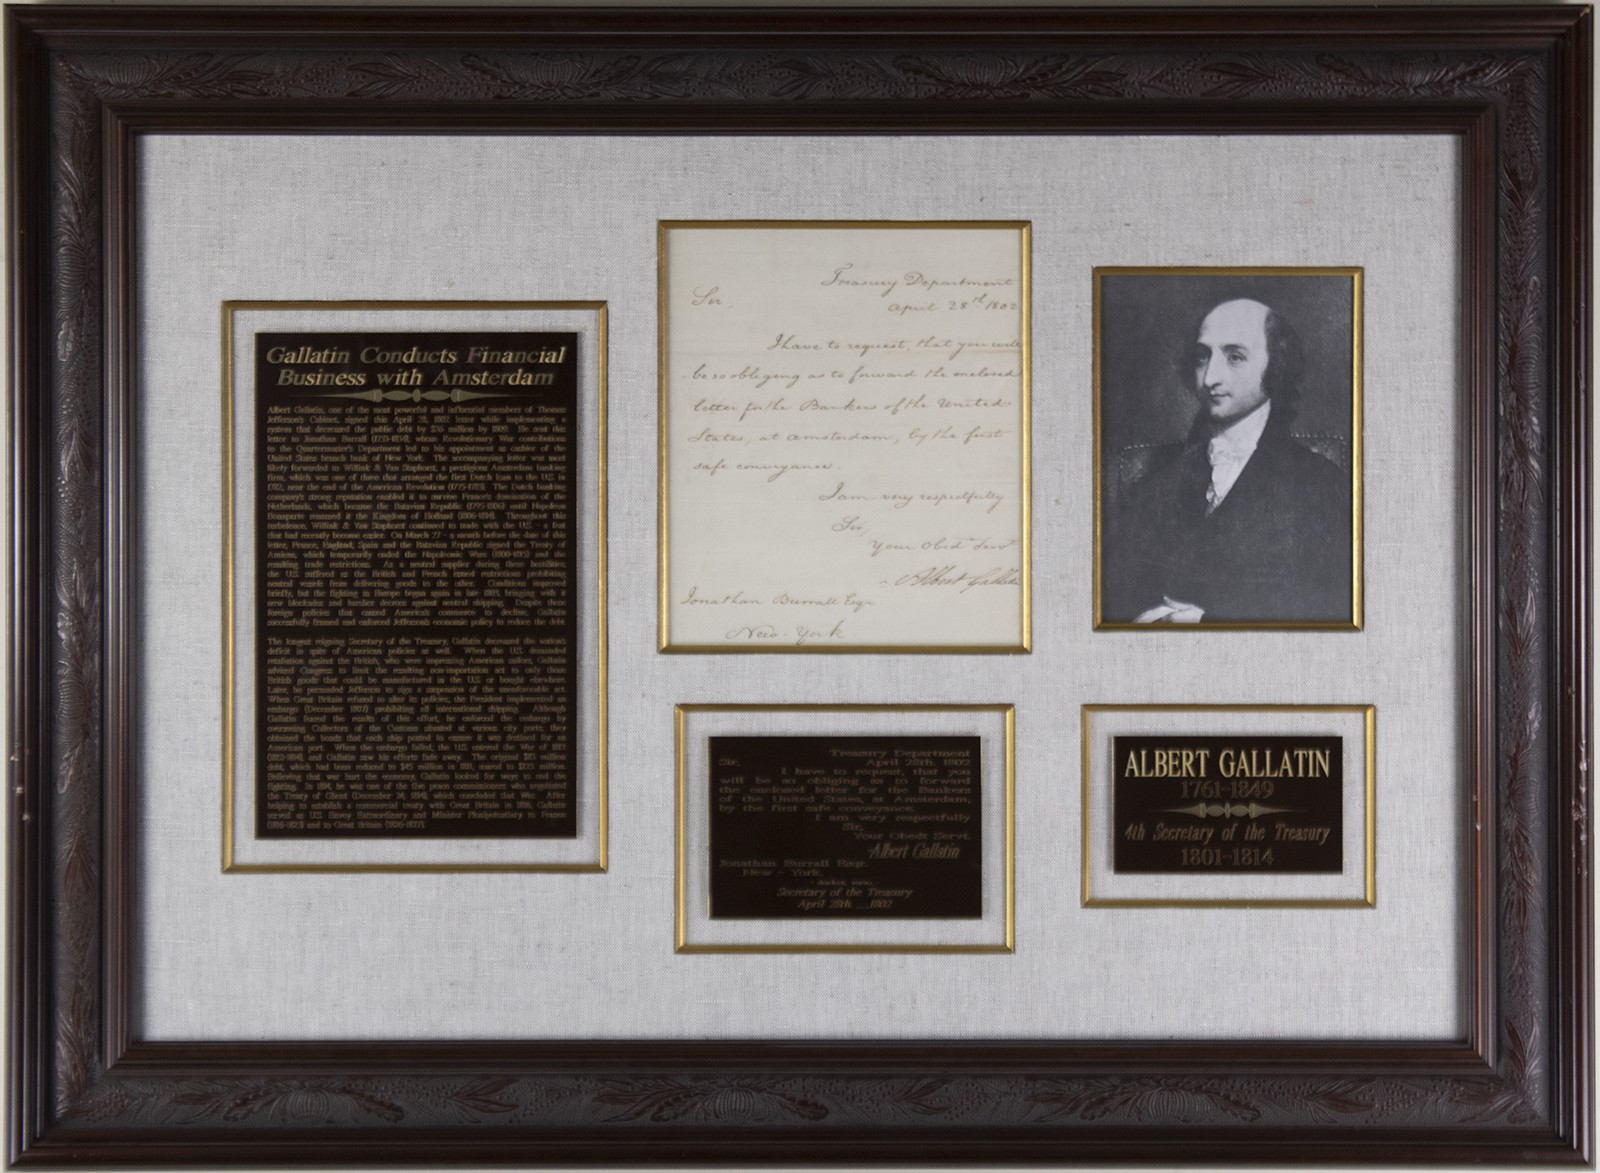 Gallatin Conducts Financial
Business with Amsterdam
Albert Gallatin, one of the most powerful and influential members of Thomas
Jefferson's Cabinet, signed this April 28, 1802 letter while implementing a
system that decreased the public debt by $36 million by 1809. He sent this
letter to Jonathan Burrall (1753-1834), whose Revolutionary War contributions
to the Quartermaster's Department led to his appointment as cashier of the
United States branch bank of New York. The accompanying letter was most
likely forwarded to Willink & Van Staphorst, a prestigious Amsterdam banking
firm, which was one of three that arranged the first Dutch loan to the U.S. in
1782, near the end of the American Revolution (1775-1783). The Dutch banking
company's strong reputation enabled it to survive France's domination of the
Netherlands, which became the Batavian Republic (1795-1806) until Napoleon
Bonaparte renamed it the Kingdom of Holland (1806-1814). Throughout this
turbulence, Willink & Van Staphorst continued to trade with the U.S. - a feat
that had recently become easier. On March 27 - a month before the date of this
letter, France, England, Spain and the Batavian Republic signed the Treaty of
Amiens, which temporarily ended the Napoleonic Wars (1800-1815) and the
resulting trade restrictions. As a neutral supplier during these hostilities,
the U.S. suffered as the British and French issued restrictions prohibiting
neutral vessels from delivering goods to the other. Conditions improved
briefly, but the fighting in Europe began again in late 1803, bringing with it
new blockades and harsher decrees against neutral shipping. Despite these
foreign policies that caused America's commerce to decline, Gallatin
successfully framed and enforced Jefferson's economic policy to reduce the debt.
The longest reigning Secretary of the Treasury, Gallatin decreased the nation's
deficit in spite of American policies as well. When the U.S. demanded
retaliation against the British, who were impressing American sailors, Gallatin
advised Congress to limit the resulting non-importation act to only those
British goods that could be manufactured in the U.S. or bought elsewhere.
Later, he persuaded Jefferson to sign a suspension of the unenforceable act.
When Great Britain refused to alter its policies, the President implemented an
embargo (December 1807) prohibiting all international shipping. Although
Gallatin feared the results of this effort, he enforced the embargo by
overseeing Collectors of the Customs situated at various city ports; they
obtained the bonds that each ship posted to ensure it was destined for an
American port. When the embargo failed, the U.S. entered the War of 1812
(1812-1814), and Gallatin saw his efforts fade away. The original $83 million
debt, which had been reduced to $45 million in 1811, soared to $123 million.
Believing that war hurt the economy, Gallatin looked for ways to end the
fighting. In 1814, he was one of the five peace commissioners who negotiated
the Treaty of Ghent (December 24, 1814), which concluded that War. After
helping to establish a commercial treaty with Great Britain in 1816, Gallatin
served as U.S. Envoy Extraordinary and Minister Plenipotentiary to France
(1816-1823) and to Great Britain (1826-1827).
Treasury Department
April 28th 1802
Sir,
I have to request, that you will
be so obliging as to forward the enclosed
letter for the Bankers of the United
States, at Amsterdam, by the first
safe conveyance.
I am very respectfully
Sir,
Your Obedt Servt.
Albert Gallatin
Jonathan Burrall Esqr.
New-York.
Treasury Department
Sir, April 28th. 1802
I have to request, that you
will be so obliging as to forward
the enclosed letter for the Bankers
of the United States, at Amsterdam,
by the first safe conveyance.
I am very respectfully
Sir,
Your Obedt Servt.
Albert Gallatin
Jonathan Burrall Esqr.
New - York.
Secretary of the Treasury
April 28th 1802
ALBERT GALLATIN
1761-1849
4th Secretary of the Treasury
1801-1814